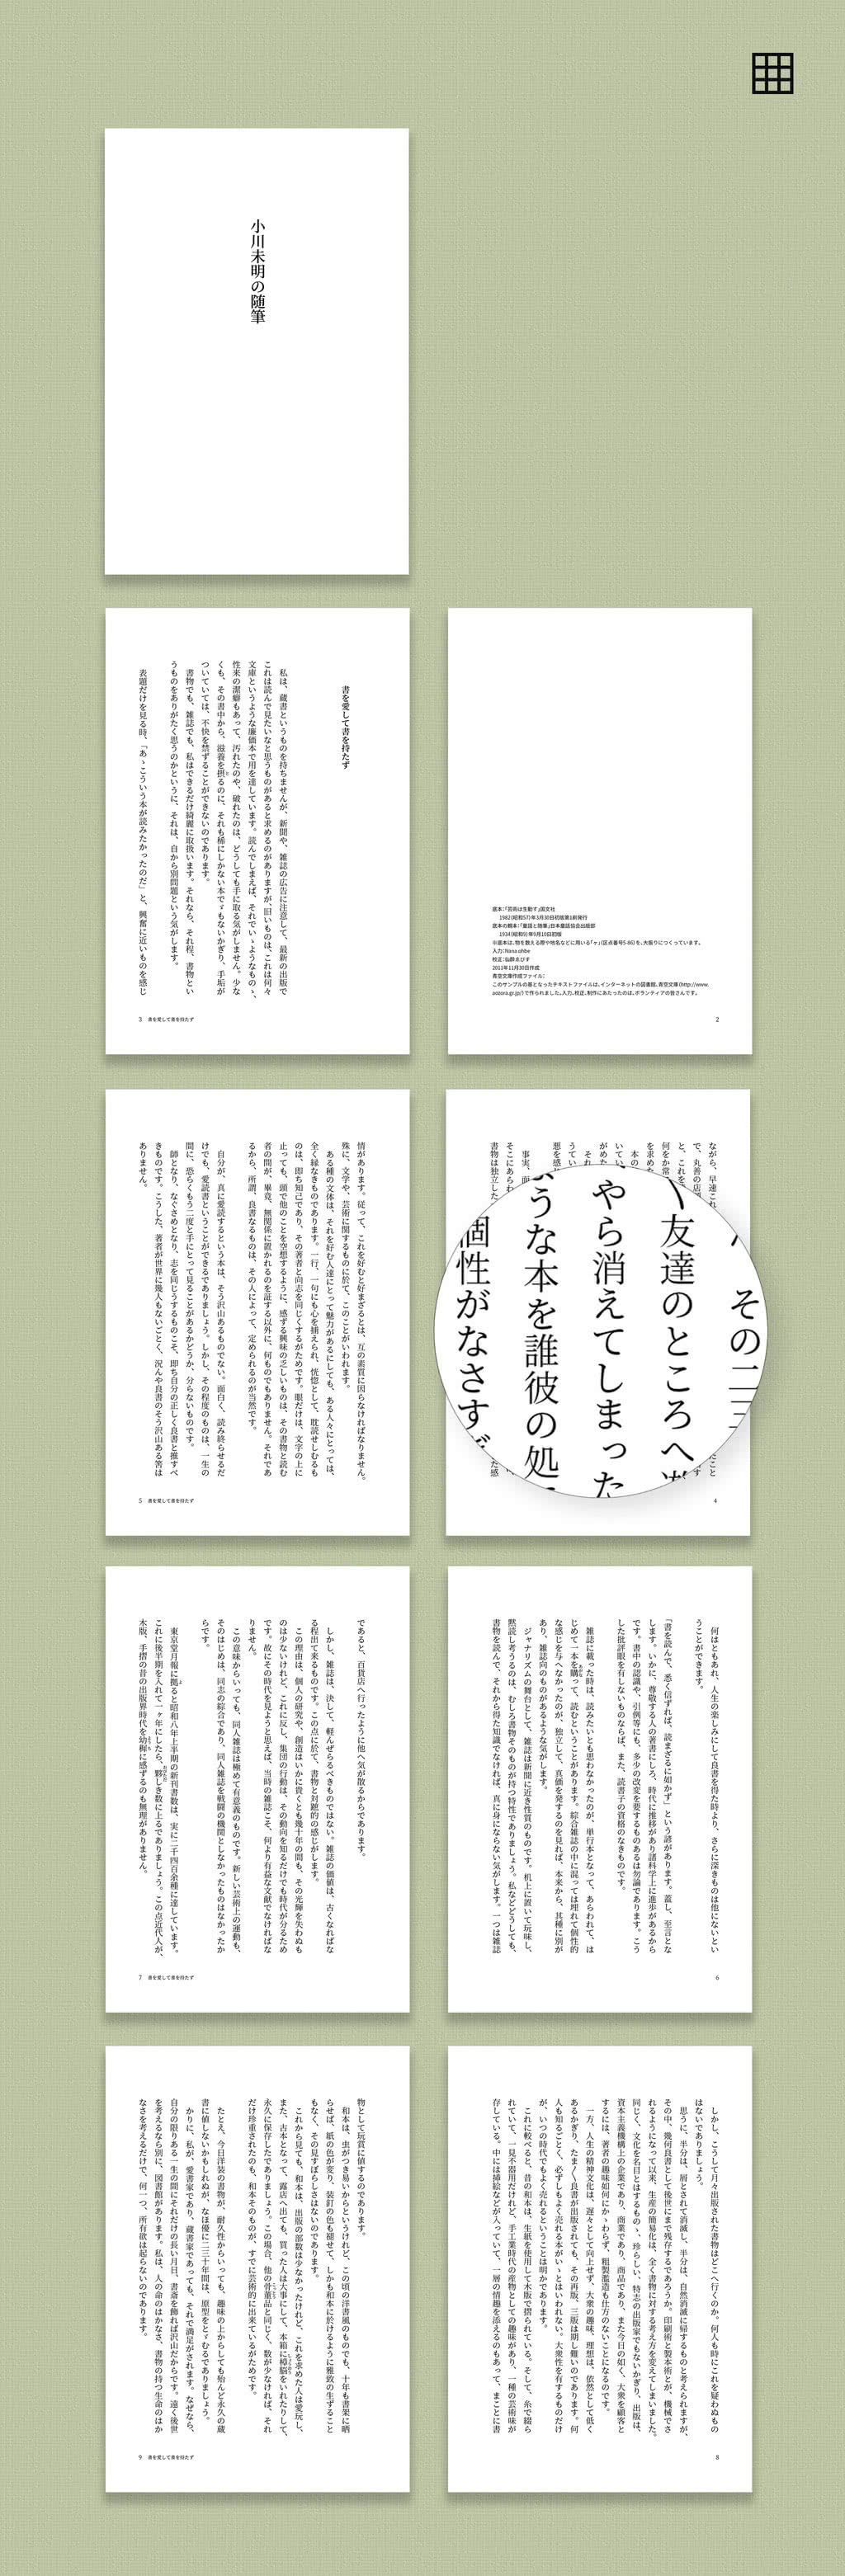 小川未明の随筆
底本:「芸術は生動す」国文社
1982(昭和57)年3月30日初版第1刷発行
底本の親本:「童話と随筆」日本童話協会出版部
1934(昭和9)年9月10日初版
※底本は、物を数える際や地名などに用いる「ヶ」(区点番号5-86)を、大振りにつくっています。
入力:Nana ohbe
校正:仙酔ゑびす
2011年11月30日作成
青空文庫作成ファイル:
このサンプルの基となったテキストファイルは、インターネットの図書館、青空文庫(http://www.
aozora.gr.jp/)で作られました。入力、校正、制作にあたったのは、ボランティアの皆さんです。
2
書を愛して書を持たず
私は、蔵書というものを持ちませんが、新聞や、雑誌の広告に注意して、最新の出版で
これは読んで見たいなと思うものがあると求めるのがありますが、旧いものは、これは何々
文庫というような廉価本で用を達しています。読んでしまえば、それでいゝようなものゝ、
性来の潔癖もあって、汚れたのや、破れたのは、どうしても手に取る気がしません。少な
くも、その書中から、滋養を摂るのに、それも稀にしかない本でゞもないかぎり、手垢が
ついていては、不快を禁ずることができないのであります。
書物でも、雑誌でも、私はできるだけ綺麗に取扱います。それなら、それ程、書物とい
うものをありがたく思うのかというに、それは、自から別問題という気がします。
表題だけを見る時、「あゝこういう本が読みたかったのだ」と、興奮に近いものを感じ
3 書を愛して書を持たず
ながら、早速これ
で、丸善の店
と、これを
何をか常
を求め
本の
いてい
がめた
それ
うてい
悪を感
事実、面
そこにあらわ
書物は独立した
その二三
友達のところへ
やら消えてしまった
うな本を誰彼の処
個性がなさす
4
情があります。従って、これを好むと好まざるとは、互の素質に因らなければなりません。
殊に、文学や、芸術に関するものに於て、このことがいわれます。
ある種の文体は、それを好む人達にとって魅力があるにしても、ある人々にとっては、
全く縁なきものであります。一行、一句にも心を捕えられ、恍惚として、耽読せしむるも
のは、即ち知己であり、その著者と向志を同じくするがためです。眼だけは、文字の上に
止っても、頭で他のことを空想するように、感ずる興味の乏しいものは、その書物と読む
者の間が、畢竟、無関係に置かれるのを証する以外に、何ものでもありません。それであ
るから、所謂、良書なるものは、その人によって、定められるのが当然です。
自分が、真に愛読するという本は、そう沢山あるものでない。面白く、読み終らせるだ
けでも、愛読書ということができるでありましょう。しかし、その程度のものは、一生の
間に、恐らくもう二度と手にとって見ることがあるかどうか、分らないものです。
師となり、なぐさめとなり、志を同じうするものこそ、即ち自分の正しく良書と推すべ
きものです。こうした、著者が世界に幾人もないごとく、況んや良書のそう沢山ある筈は
ありません。
5 書を愛して書を持たず
何はともあれ、人生の楽しみにして良書を得た時より、さらに深きものは他にないとい
うことができます。
「書を読んで、悉く信ずれば、読まざるに如かず」という諺があります。蓋し、至言とな
します。いかに、尊敬する人の著書にしろ、時代に推移があり諸科学上に進歩があるから
です。書中の認識や、引例等にも、多少の改変を要するものあるは勿論であります。こう
した批評眼を有しないものならば、また、読書子の資格のなきものです。
雑誌に載った時は、読みたいとも思わなかったのが、単行本となって、あらわれて、は
じめて一本を購って、読むということがあります。綜合雑誌の中に混っては埋れて個性的
な感じを与へなかったのが、独立して、真価を発するのを見れば、本来から、其種に別が
あり、雑誌向のものがあるような気がします。
ジャナリズムの舞台として、雑誌は新聞に近き性質のものです。机上に置いて玩味し、
黙読し考うるのは、むしろ書物そのものが持つ特性でありましょう。私などどうしても、
書物を読んで、それから得た知識でなければ、真に身にならない気がします。一つは雑誌
6
であると、百貨店へ行ったように他へ気が散るからであります。
しかし、雑誌は、決して、軽んぜらるべきものではない。雑誌の価値は、古くなればな
る程出て来るものです。この点に於て、書物と対蹠的の感じがします。
この理由は、個人の研究や、創造はいかに貴くとも幾十年の間も、その光輝を失わぬも
のは少ないけれど、これに反し、集団の行動は、その動向を知るだけでも時代が分るため
です。故にその時代を見ようと思えば、当時の雑誌こそ、何より有益な文献でなければな
りません。
この意味からいっても、同人雑誌は極めて有意義のものです。新しい芸術上の運動も、
そのはじめは、同志の綜合であり、同人雑誌を戦闘の機関としなかったものはなかったか
らです。
東京堂月報に拠ると昭和八年上半期の新刊書数は、実に二千四百余種に達しています。
これに後半期を入れて一ヶ年にしたら、夥しき数に上るでありましょう。この点近代人が、
木版、手摺の昔の出版界時代を幼稚に感ずるのも無理がありません。
7 書を愛して書を持たず
しかし、こうして月々出版された書物はどこへ行くのか。何人も時にこれを疑わぬもの
はないでありましょう。
思うに、半分は、屑とされて消滅し、半分は、自然消滅に帰するものと考えられますが、
その中、幾何良書として後世にまで残存するであろうか。印刷術と製本術とが、機械でさ
れるようになって以来、生産の簡易化は、全く書物に対する考え方を変えてしまいました。
同じく、文化を名目とはするものゝ、珍らしい、特志の出版家でもないかぎり、出版は、
資本主義機構上の企業であり、商業であり、商品であり、また今日の如く、大衆を顧客と
するには、著者の趣味如何にかゝわらず、粗製濫造も仕方のないことになるのです。
一方、人生の精神文化は、遅々として向上せず、大衆の趣味、理想は、依然として低く
あるかぎり、たま〱良書が出版されても、その再版、三版は期し難いのであります。何
人も知るごとく、必ずしもよく売れる本がいゝとはいわれない。大衆性を有するものだけ
が、いつの時代でもよく売れるということは明かであります。
これに較べると、昔の和本は、生紙を使用して木版で摺られている。そして、糸で綴ら
れていて、一見不器用だけれど、手工業時代の産物としての趣味があり、一種の芸術味が
存している。中には挿絵などが入っていて、一層の情趣を添えるのもあって、まことに書
8
物として玩賞に値するのであります。
和本は、虫がつき易いからというけれど、この頃の洋書風のものでも、十年も書架に晒
らせば、紙の色が変り、装釘の色も褪せて、しかも和本に於けるように雅致の生ずること
もなく、その見すぼらしさはないのであります。
これから見ても、和本は、出版の部数は少なかったけれど、これを求めた人は愛玩し、
また、古本となって、露店へ出ても、買った人は大事にして、本箱に樟脳をいれたりして、
永久に保存したでありましょう。この場合、他の骨董品と同じく、数が少なければ、それ
だけ珍重されたのも、和本そのものが、すでに芸術的に出来ているがためです。
たとえ、今日洋装の書物が、耐久性からいっても、趣味の上からしても殆んど永久の蔵
書に値しないかもしれぬが、なほ優に二三十年間は、原型をとゞむるでありましょう。
かりに、私が、愛書家であり、蔵書家であっても、それで満足がされます。なぜなら、
自分の限りある一生の間にそれだけの長い月日、書斎を飾れば沢山だからです。遠く後世
を考えるなら別に、図書館があります。私は、人の命のはかなさ、書物の持つ生命のはか
なさを考えるだけで、何一つ、所有欲は起らないのであります。
9 書を愛して書を持たず